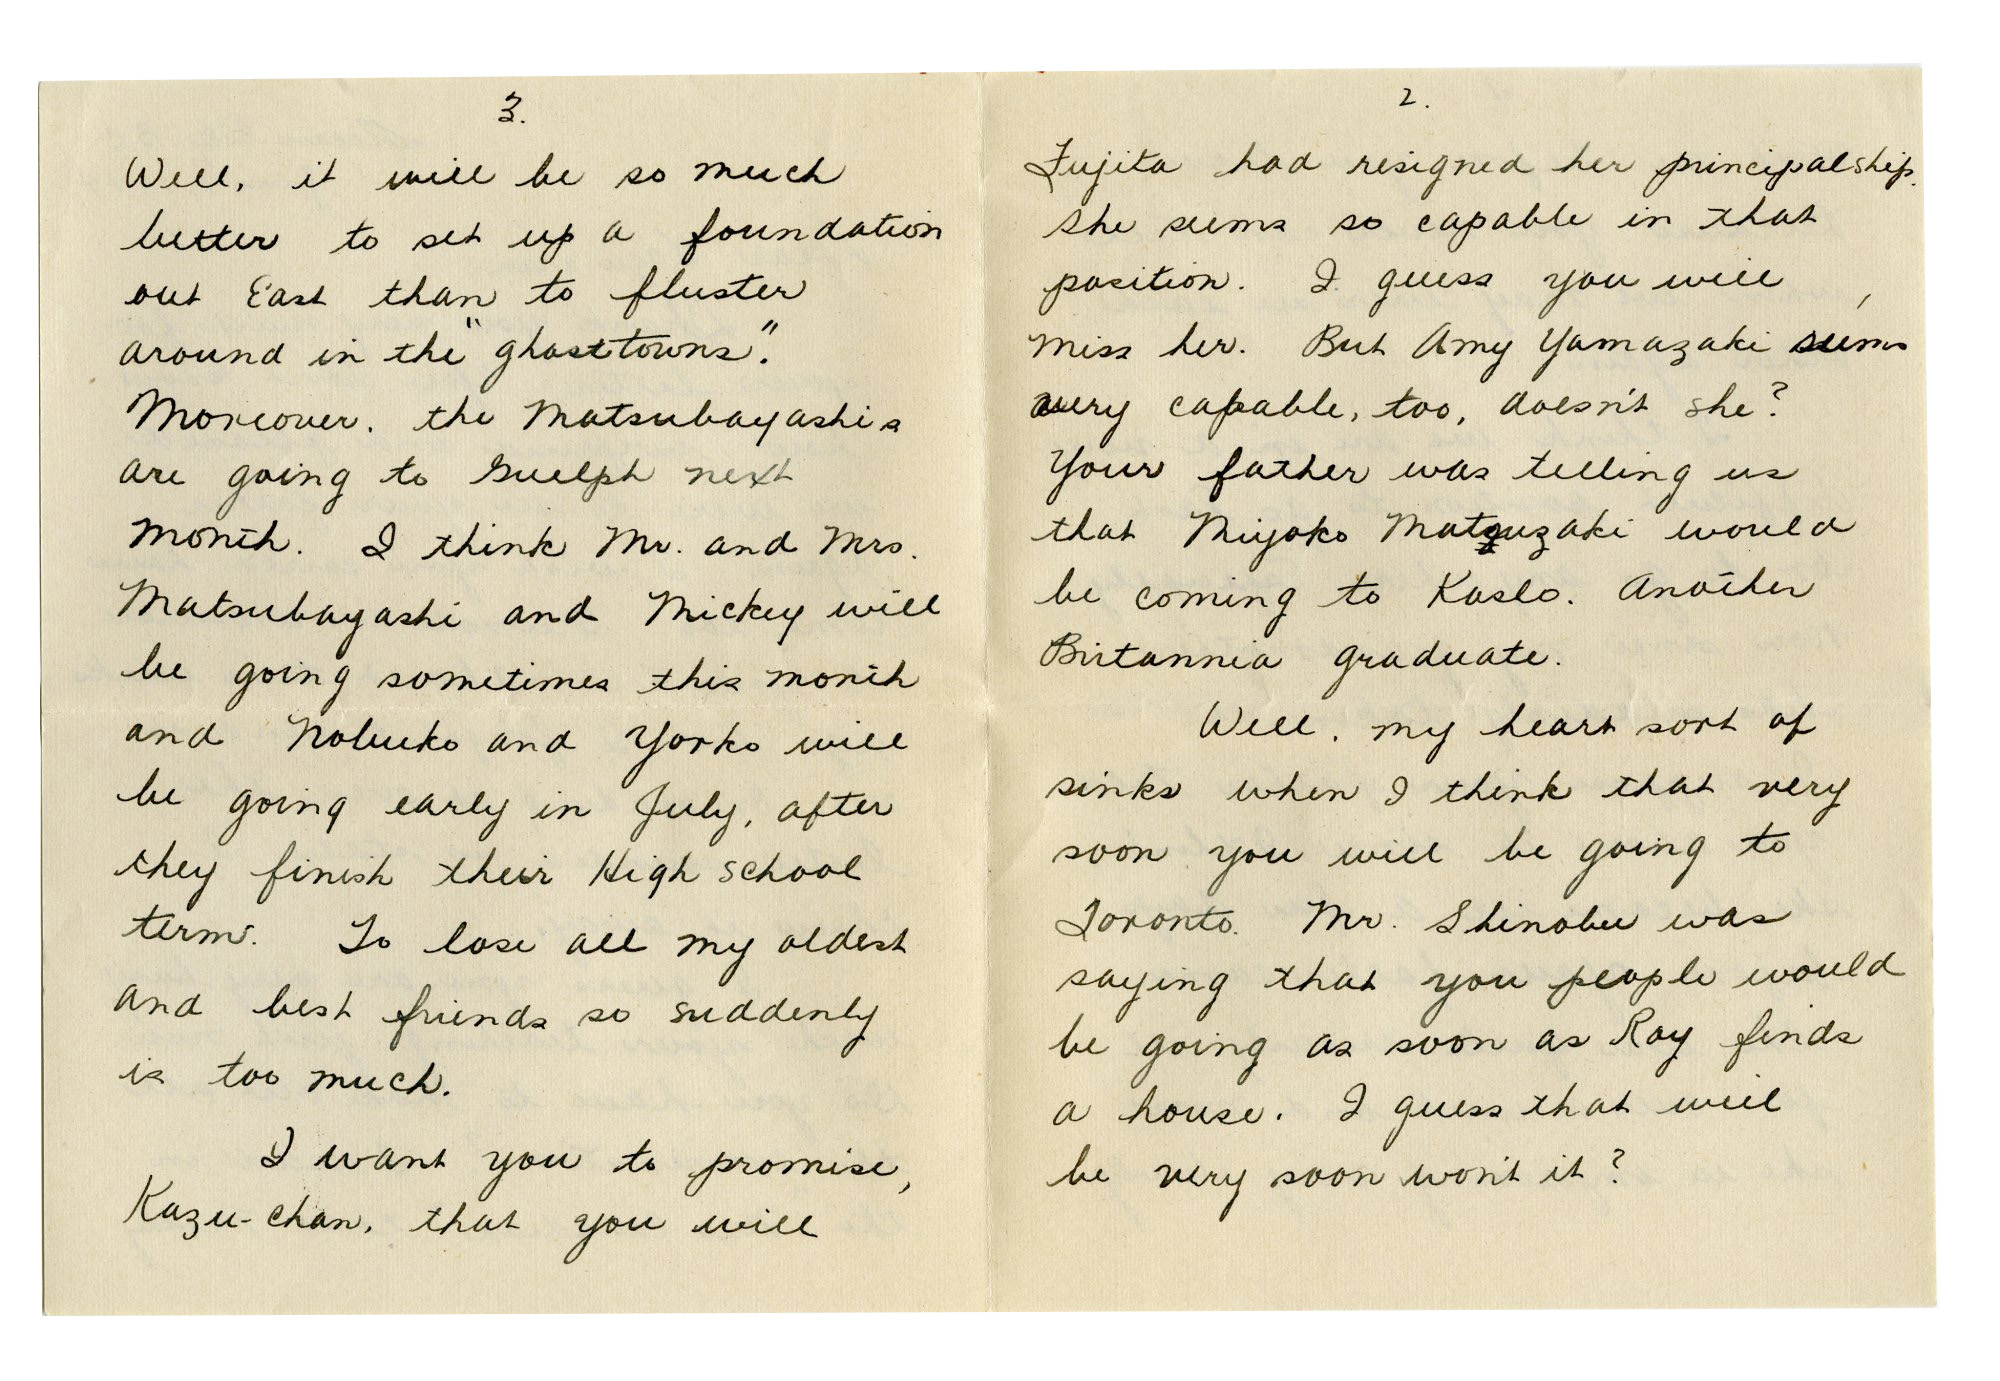 2.
Fujita had resigned her principalship.
She seems so capable in that
position. I guess you will
miss her. But Amy Yamazaki seems
very capable, too, doesn't she?
Your father was telling us
that Miyoko Matsuzaki would
be coming to Kaslo. Another
Britannia graduate.
Well, my heart sort of
sinks when I think that very
soon you will be going to
Toronto. Mr. Shinobu was
saying that you people would
be going as soon as Ray finds
a house. I guess that will
be very soon won't it?
3.
Well, it will be so much
better to set up a foundation
out East than to fluster
around in the "ghosttowns".
Moreover, the Matsubayashis
are going to Guelph next
month. I think Mr. and Mrs.
Matsubayashi and Mickey will
be going sometimes this month
and Nobuko and Yorko will
be going early in July, after
they finish their High school
term. To lose all my oldest
and best friends so suddenly
is too much.
I want you to promise,
Kazu-chan, that you will